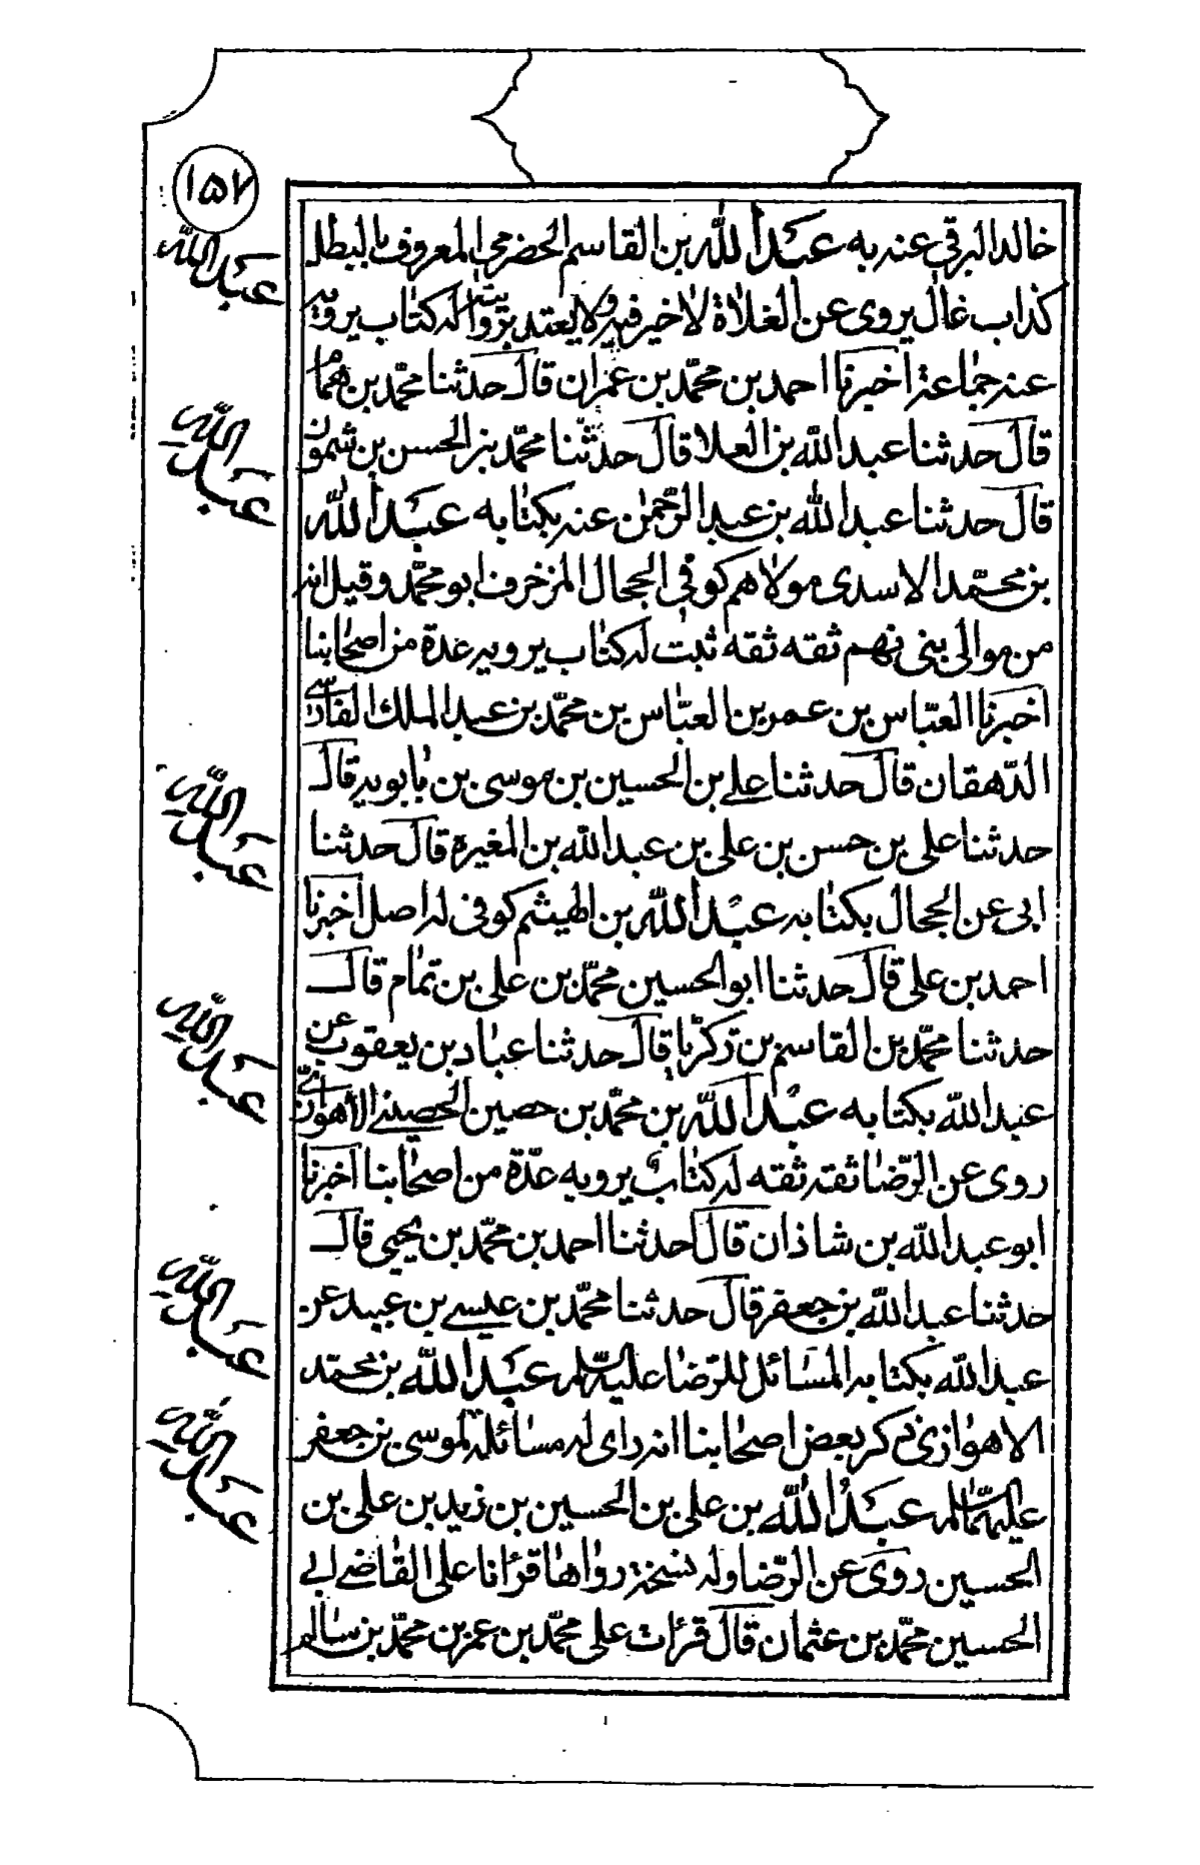 ١٥٧
خالد البرقي عنه به عبد الله بن القاسم الحضرمي المعروف بالبطل
كذاب غال يروي عن الغلاة لا خير فيه ولا يعتد بروايته له كتاب يرويه
عنه جماعة اخبرنا احمد بن محمّد بن عمران قال حدثنا محمّد بن همام
قال حدثنا عبد الله بن العلا قال حدثنا محمّد بن الحسن بن شمون
قال حدثنا عبد الله بن عبد الرّحمن عنه بكتابه عبد الله
بن محمّد الاسدي مولاهم كوفي الحجال المزخرف ابو محمّد وقيل انه
من موالى بنى نهم ثقه ثقه ثبت له كتاب يرويه عدة من اصحابنا
اخبرنا العبّاس بن عمر بن العبّاس بن محمّد بن عبد الملك الفارسي
الدّهقان قال حدثنا علي بن الحسين بن موسى بن بابويه قال
حدثنا على بن حسن بن على بن عبد الله بن المغيرة قال حدثنا
ابى عن الحجال بكتابه عبد الله بن الهيثم كوفى له اصل اخبرنا
احمد بن على قال حدثنا ابو الحسين محمّد بن على بن تمام قال
حدثنا محمّد بن القاسم بن زكريّا قال حدثنا عباد بن يعقوب عن
عبد الله بكتابه عبد الله بن محمّد بن حصين الحصيني الأهوازي
روى عن الرّضا ثقته ثقه له كتاب يرويه عدّة من اصحابنا اخبرنا
ابو عبد الله بن شاذان قال حدثنا احمد بن محمّد بن يحيى قال
حدثنا عبد الله بن جعفر قال حدثنا محمّد بن عيسى بن عبيد عن
عبد الله بكتابه المسائل للرّضا عليه السّلم عبد الله بن محمّد
الاهوازي ذكر بعض اصحابنا انه راى له مسائله لموسى بن جعفر
عليهما السّلم عبد الله بن على بن الحسين بن زيد بن على بن
الحسين روى عن الرّضا وله نسخة رواها قرانا على القاضي ابي
الحسين محمّد بن عثمان قال قرات على محمّد بن عمر بن محمّد بن سالم
عبد الله
عبد الله
عبد الله
عبد الله
عبد الله
عبد الله